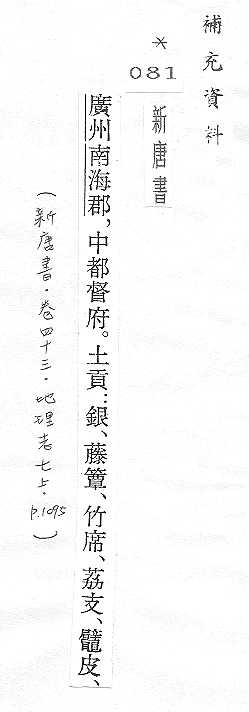 補充資料
*
081
新唐書
廣州南海郡，中都督府。土貢：銀、藤簟、竹席、荔支、䶲皮、
（新唐書．卷四十三．地理志七上．p.1095）